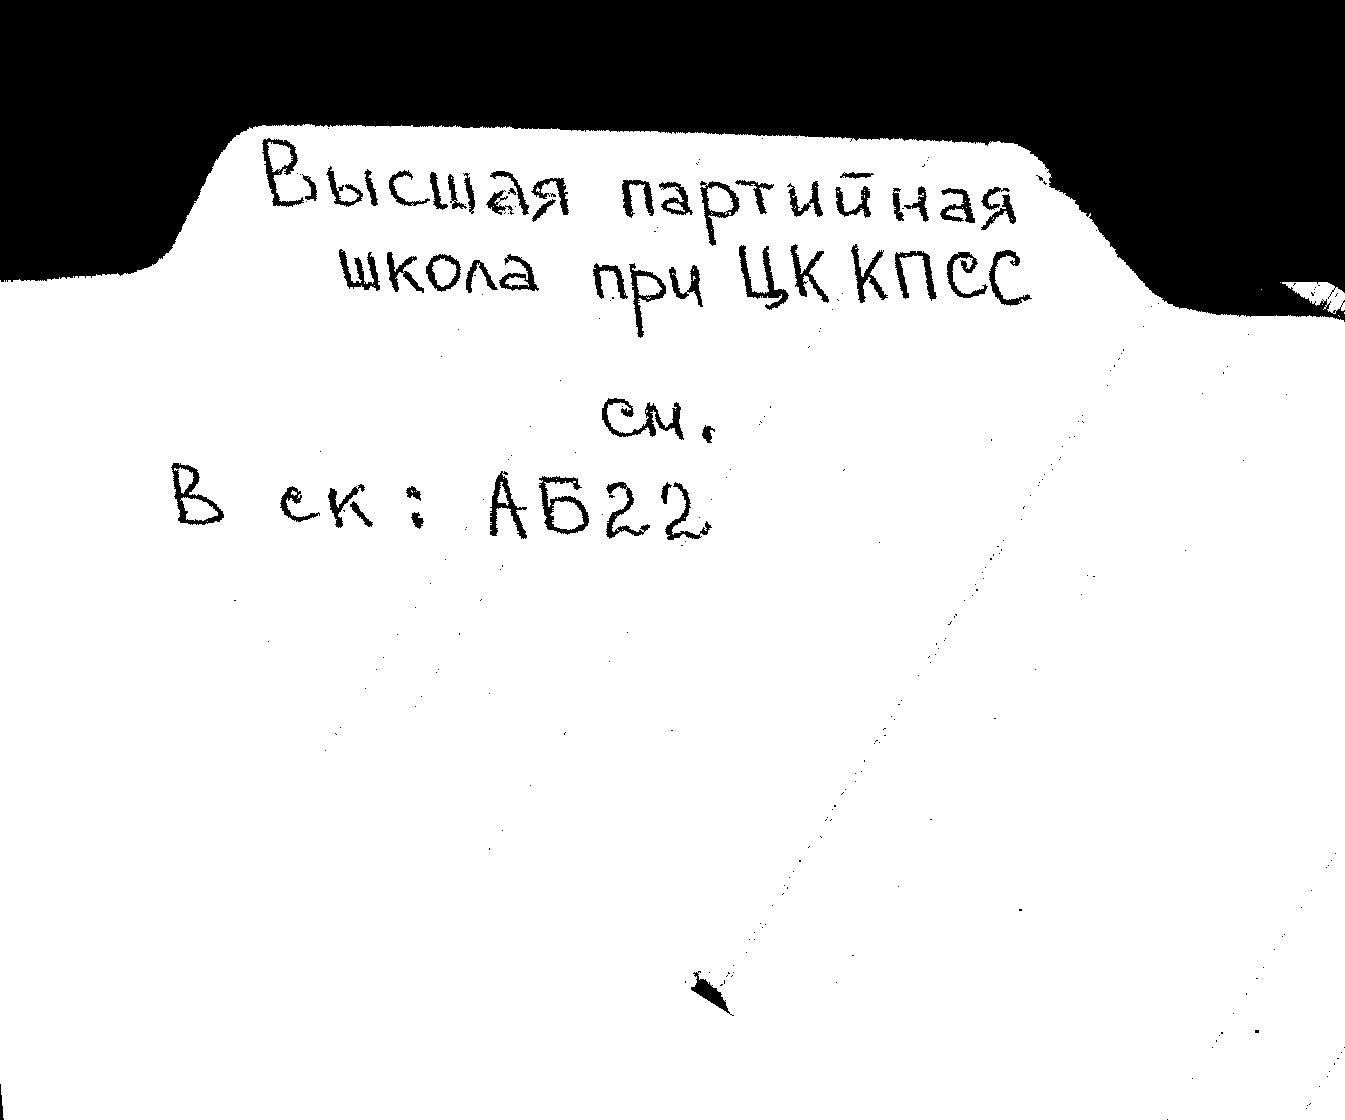 Высшая партийная
школа при ЦК КПСС
см.
В ск: АБ22